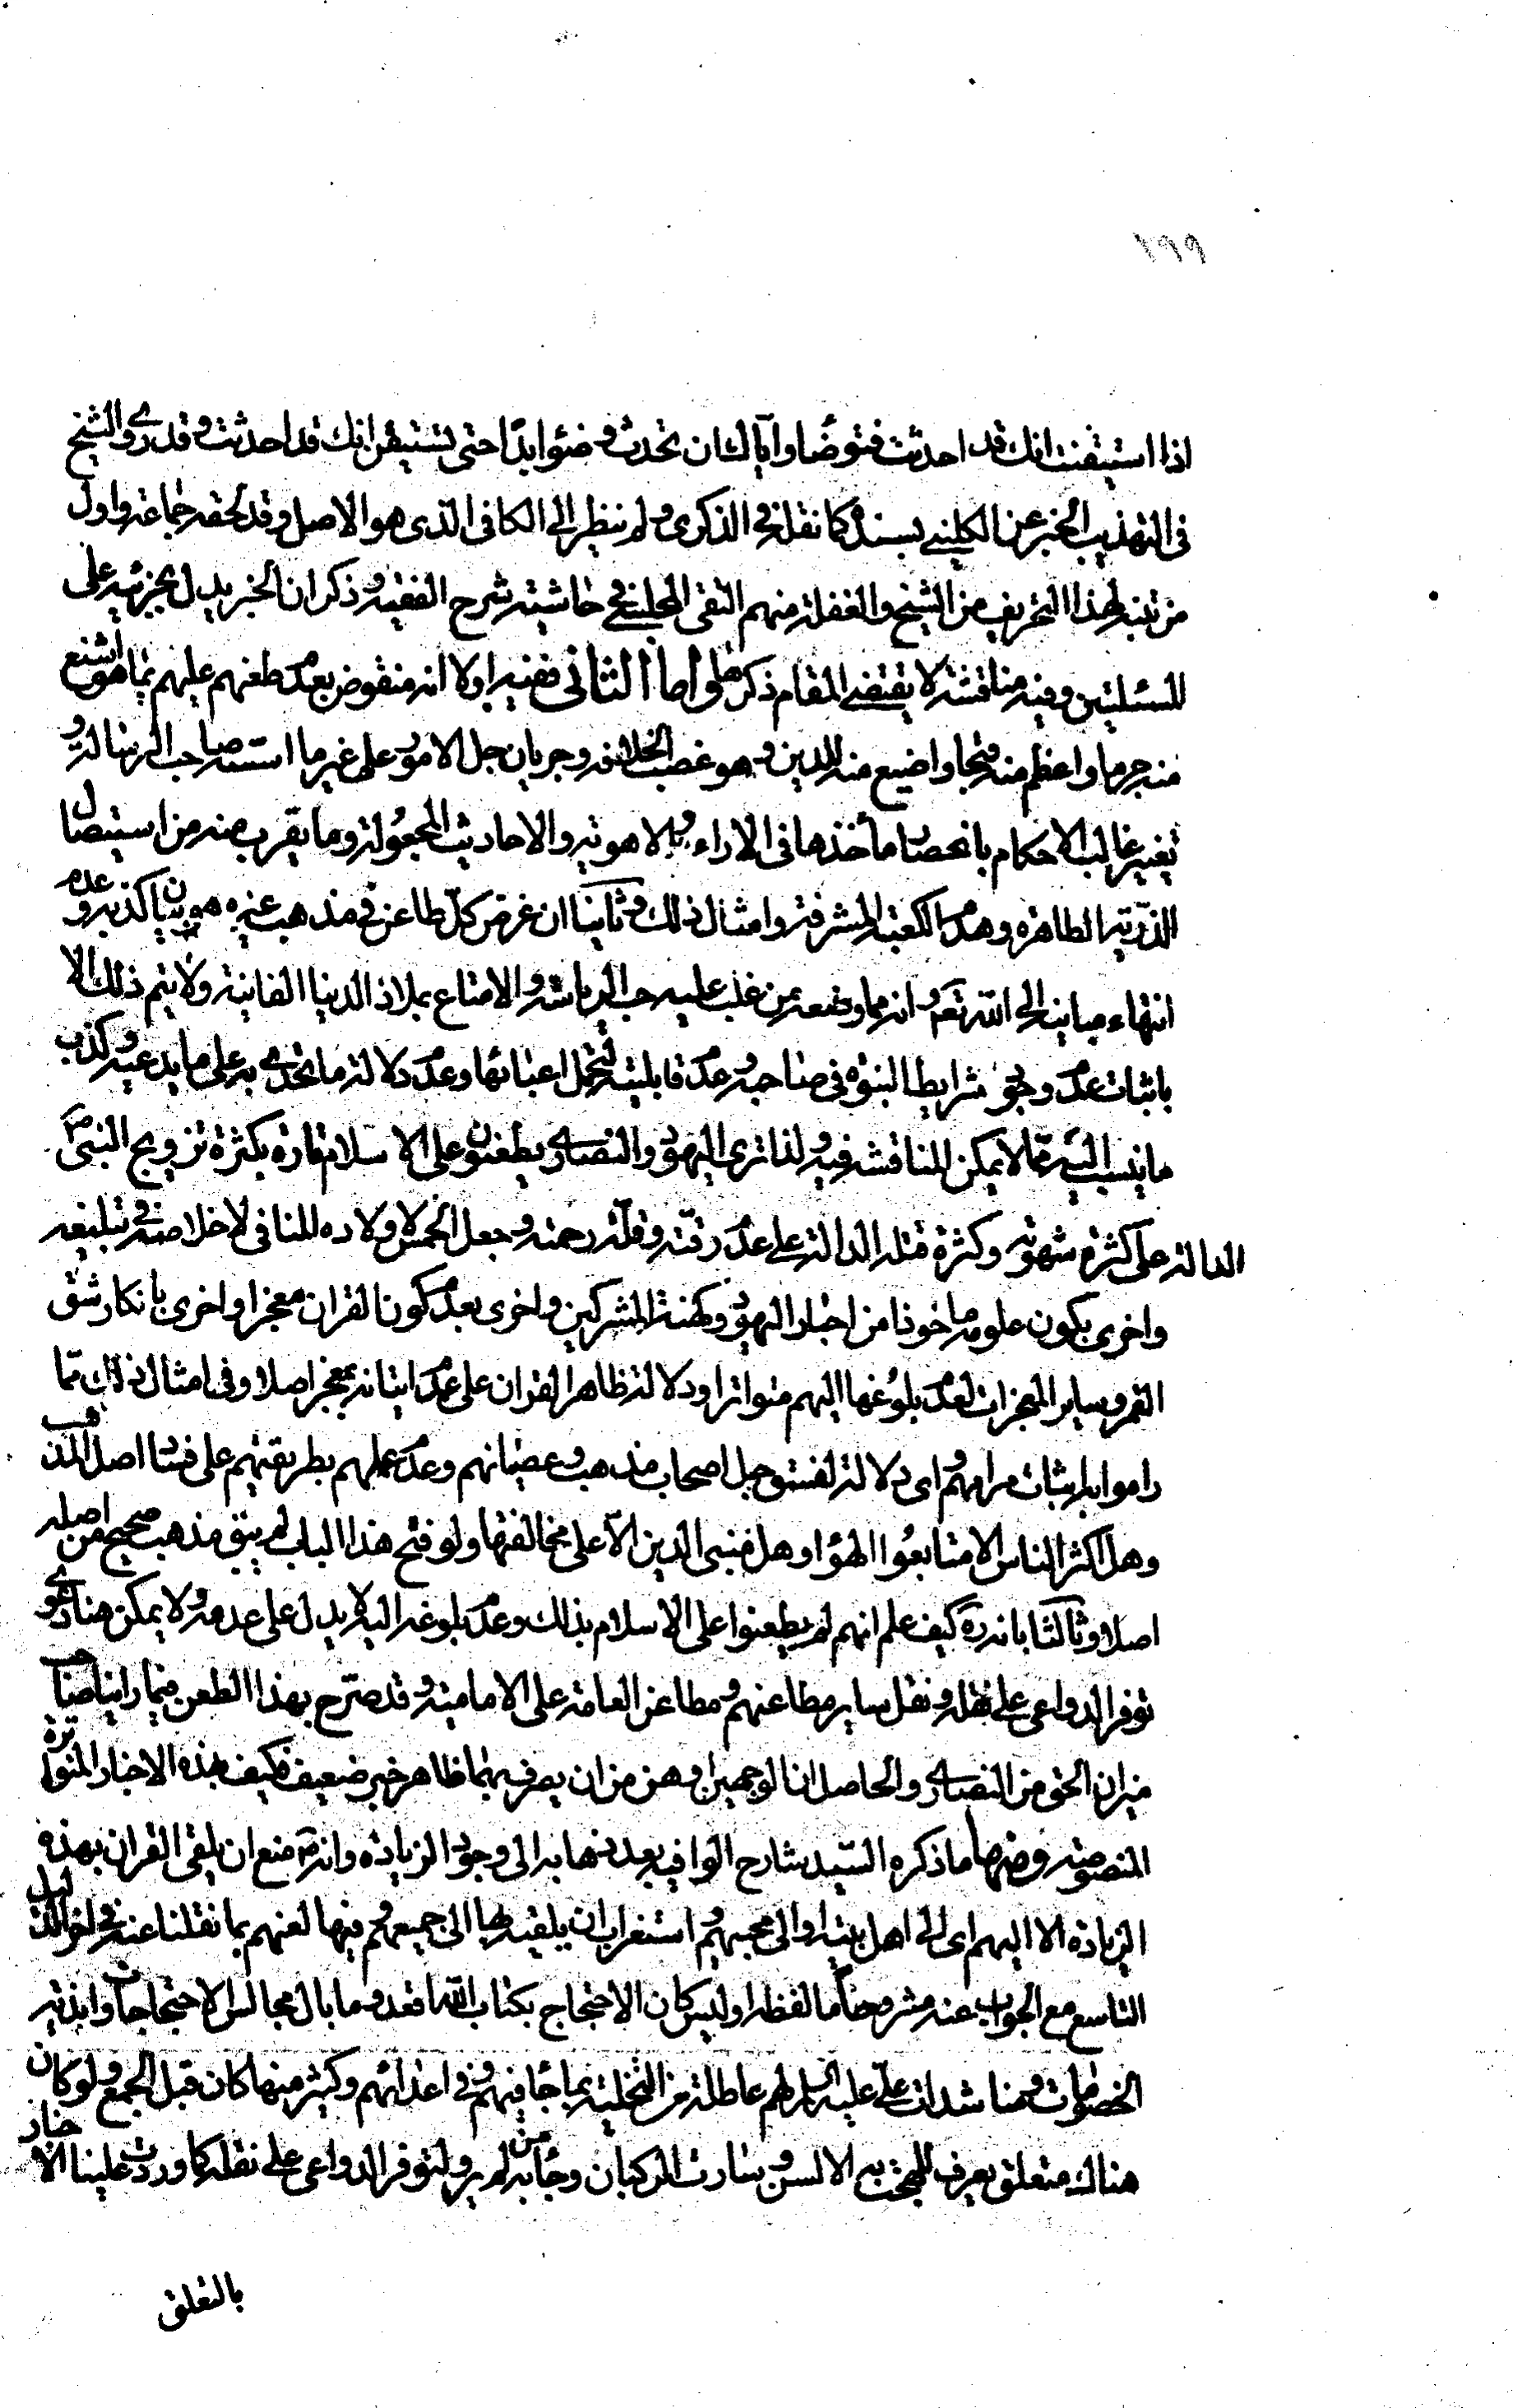 ٢٩٩
اذا استيقنت انك قد احدثت فتوضأ واياك ان تحدث وضوءا ابدا حتى تستيقن انك قد احدثت وقد روى الشيخ
فى التهذيب الخبر عن الكلينى بسنده كما نقله فى الذكرى ولم ينظر الى الكافى الذى هو الاصل وقد لحقه جماعة واول
من تنبه لهذا التحريف من الشيخ والغفلة منهم التقى المجلسى فى حاشيته شرح الفقيه وذكر ان الخبر يدل بجزئيه على
المسئلتين وفيه مناقشة لا يقتضى المقام ذكرها واما الثانى ففيه اولا انه منقوض بعدم طعنهم عليهم بما هو اشنع
منه جرما واعظم منه قبحا واضيع منه للدين وهو غصب الخلافة وجريان جل الامور على غير ما اسسه صاحب الرسالة و
تغيير غالب الاحكام بانحصار مأخذها فى الاراء والاحاديث المجعولة وما يقرب منه من استيصال
الذرية الطاهرة وهدم الكعبة المشرفة وامثال ذلك وثانيا ان غرض كل طاعن فى مذهب غيره هو بيان كذبه وعدم
انتهاء مبانيه الى الله تعالى وانه مما وضعه من غلب عليه حب الرياسة والامتاع بملاذ الدنيا الفانية ولا يتم ذلك الا
باثبات عدم وجود شرايط النبوة فى صاحبه وعدم قابليته لتحمل اعبائها وعدم دلالة ما تحدى به على ما يدعيه وكذب
ما ينسب اليه مما لا يمكن المناقشة فيه ولذا ترى اليهود والنصارى يطعنون على الاسلام تارة بكثرة تزويج النبى ص
الدالة على كثرة شهوته وكثرة قتله الدالة على عدم رقته وقلة رحمته وجعل الخمس لاولاده المنافى لاخلاصه فى تبليغه
واخرى بكون علومه ماخوذا من احبار اليهود وكهنة المشركين واخرى بعدم كون القران معجزا واخرى بانكار شق
القمر وساير المعجزات لعدم بلوغها اليهم متواترا ودلالة ظاهر القران على عدم اتيانه بمعجز اصلا وفى امثال ذلك مما
راموا به اثبات مرامهم واى دلالة لفسق جل اصحاب مذهب وعصيانهم وعدم عملهم بطريقتهم على فساد اصل المذهب
وهل اكثر الناس الا متابعوا الهوا وهل مبنى الدين الا على مخالفتها ولو فتح هذا الباب لم يبق مذهب صحيح من اصله
اصلا وثالثا بانه ره كيف علم انهم لم يطعنوا على الاسلام بذلك وعدم بلوغه اليه لا يدل على عدمه ولا يمكن هنا دعوى
توفر الدواعى على نقله ونقل ساير مطاعنهم ومطاعن العامة على الامامية وقد صرح بهذا الطعن فيما راينا صاحب
ميزان الحق من النصارى والحاصل ان الوجهين اوهن من ان يصرف بهما ظاهر خبر ضعيف فكيف بهذه الاخبار المتواترة
المنصوصة ومنها ما ذكره السيد شارح الوافية بعد ذهابه الى وجود الزيادة وانه منع ان يلقى القران بهذه
الزيادة الا اليهم اى الى اهل بيته او الى محبيهم واستغراب ان يلقيه بها الى جميعهم وفيها لعنهم بما نقلنا عنه فى اخر الدليل
التاسع مع الجواب عنه مشروحا ما لفظه اوليس كان الاحتجاج بكتاب الله اقعد وما بال مجالس الاحتجاجات واندية
الخصومات ومناشدات على عليه السلم لهم عاطلة من التخلية بما جاء فيهم وفى اعدائهم وكثير منها كان قبل الجمع ولو كان
هناك متعلق يعرف للهجت به الالسن وسارت الركبان وجائنا به لم ير ولتوفر الدواعى على نقله كما وردت علينا الاخبار
بالتعلق